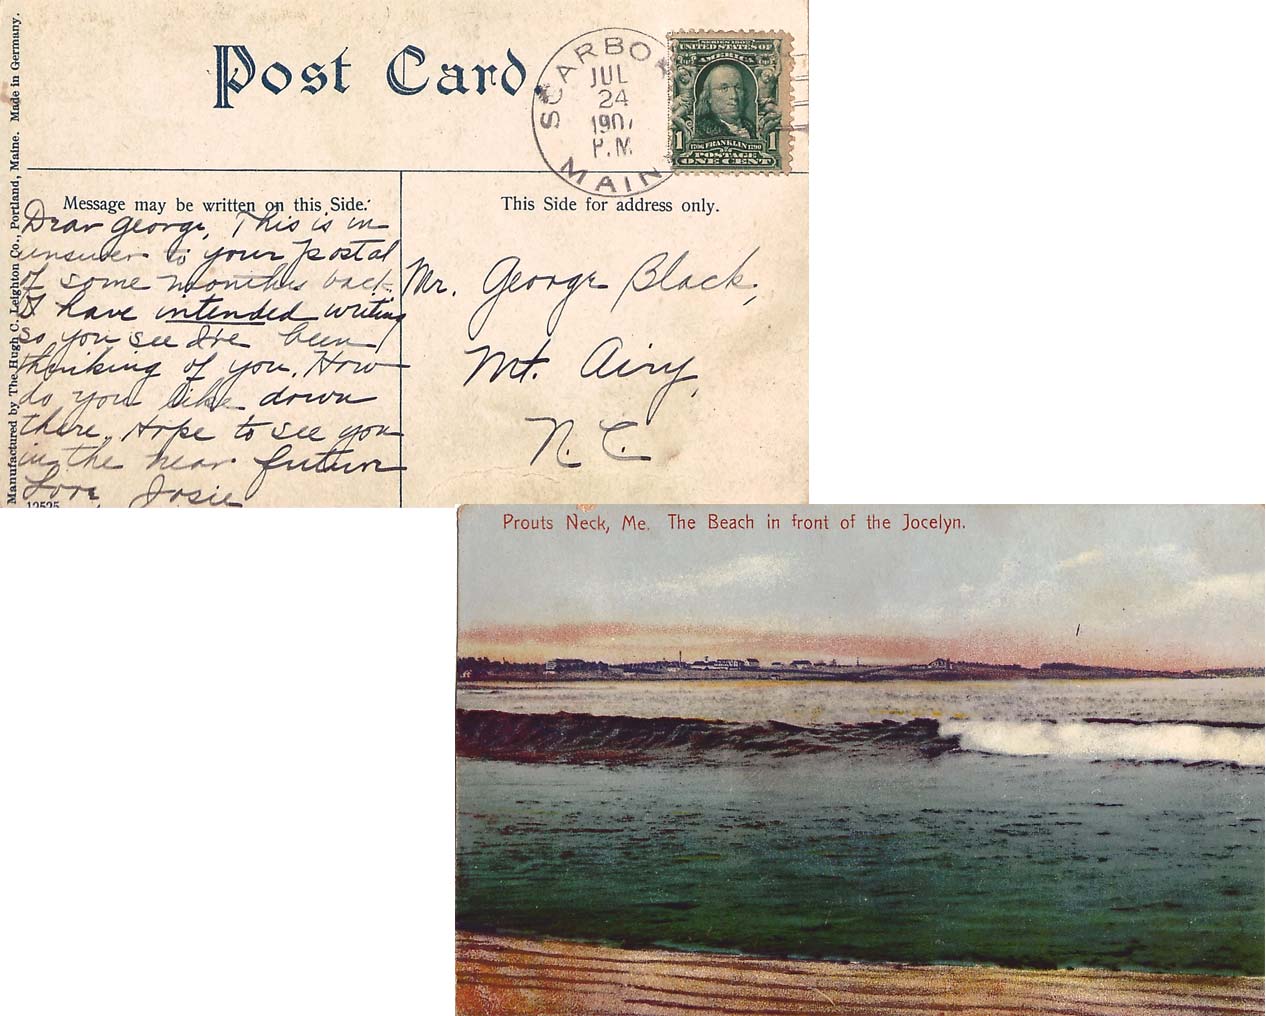 Manufactured by The Hugh C. Leighton Co., Portland, Maine. Made in Germany.
Post Card.
SCARBORO
JUL
24
1907
P.M.
MAINE
SERIES 1902
UNITED STATES OF
AMERICA
1 1706 FRANKLIN 1790 1
POSTAGE
ONE CENT
Message may be written on this Side.
Dear George, This is in
answer to your postal
of some months back.
I have intended writing
so you see I've been
thinking of you. How
do you like down
there. Hope to see you
in the near future
Love, Josie
12525
This Side for address only.
Mr. George Black,
Mt. Airy,
N.C.
Prouts Neck, Me. The Beach in front of the Jocelyn.